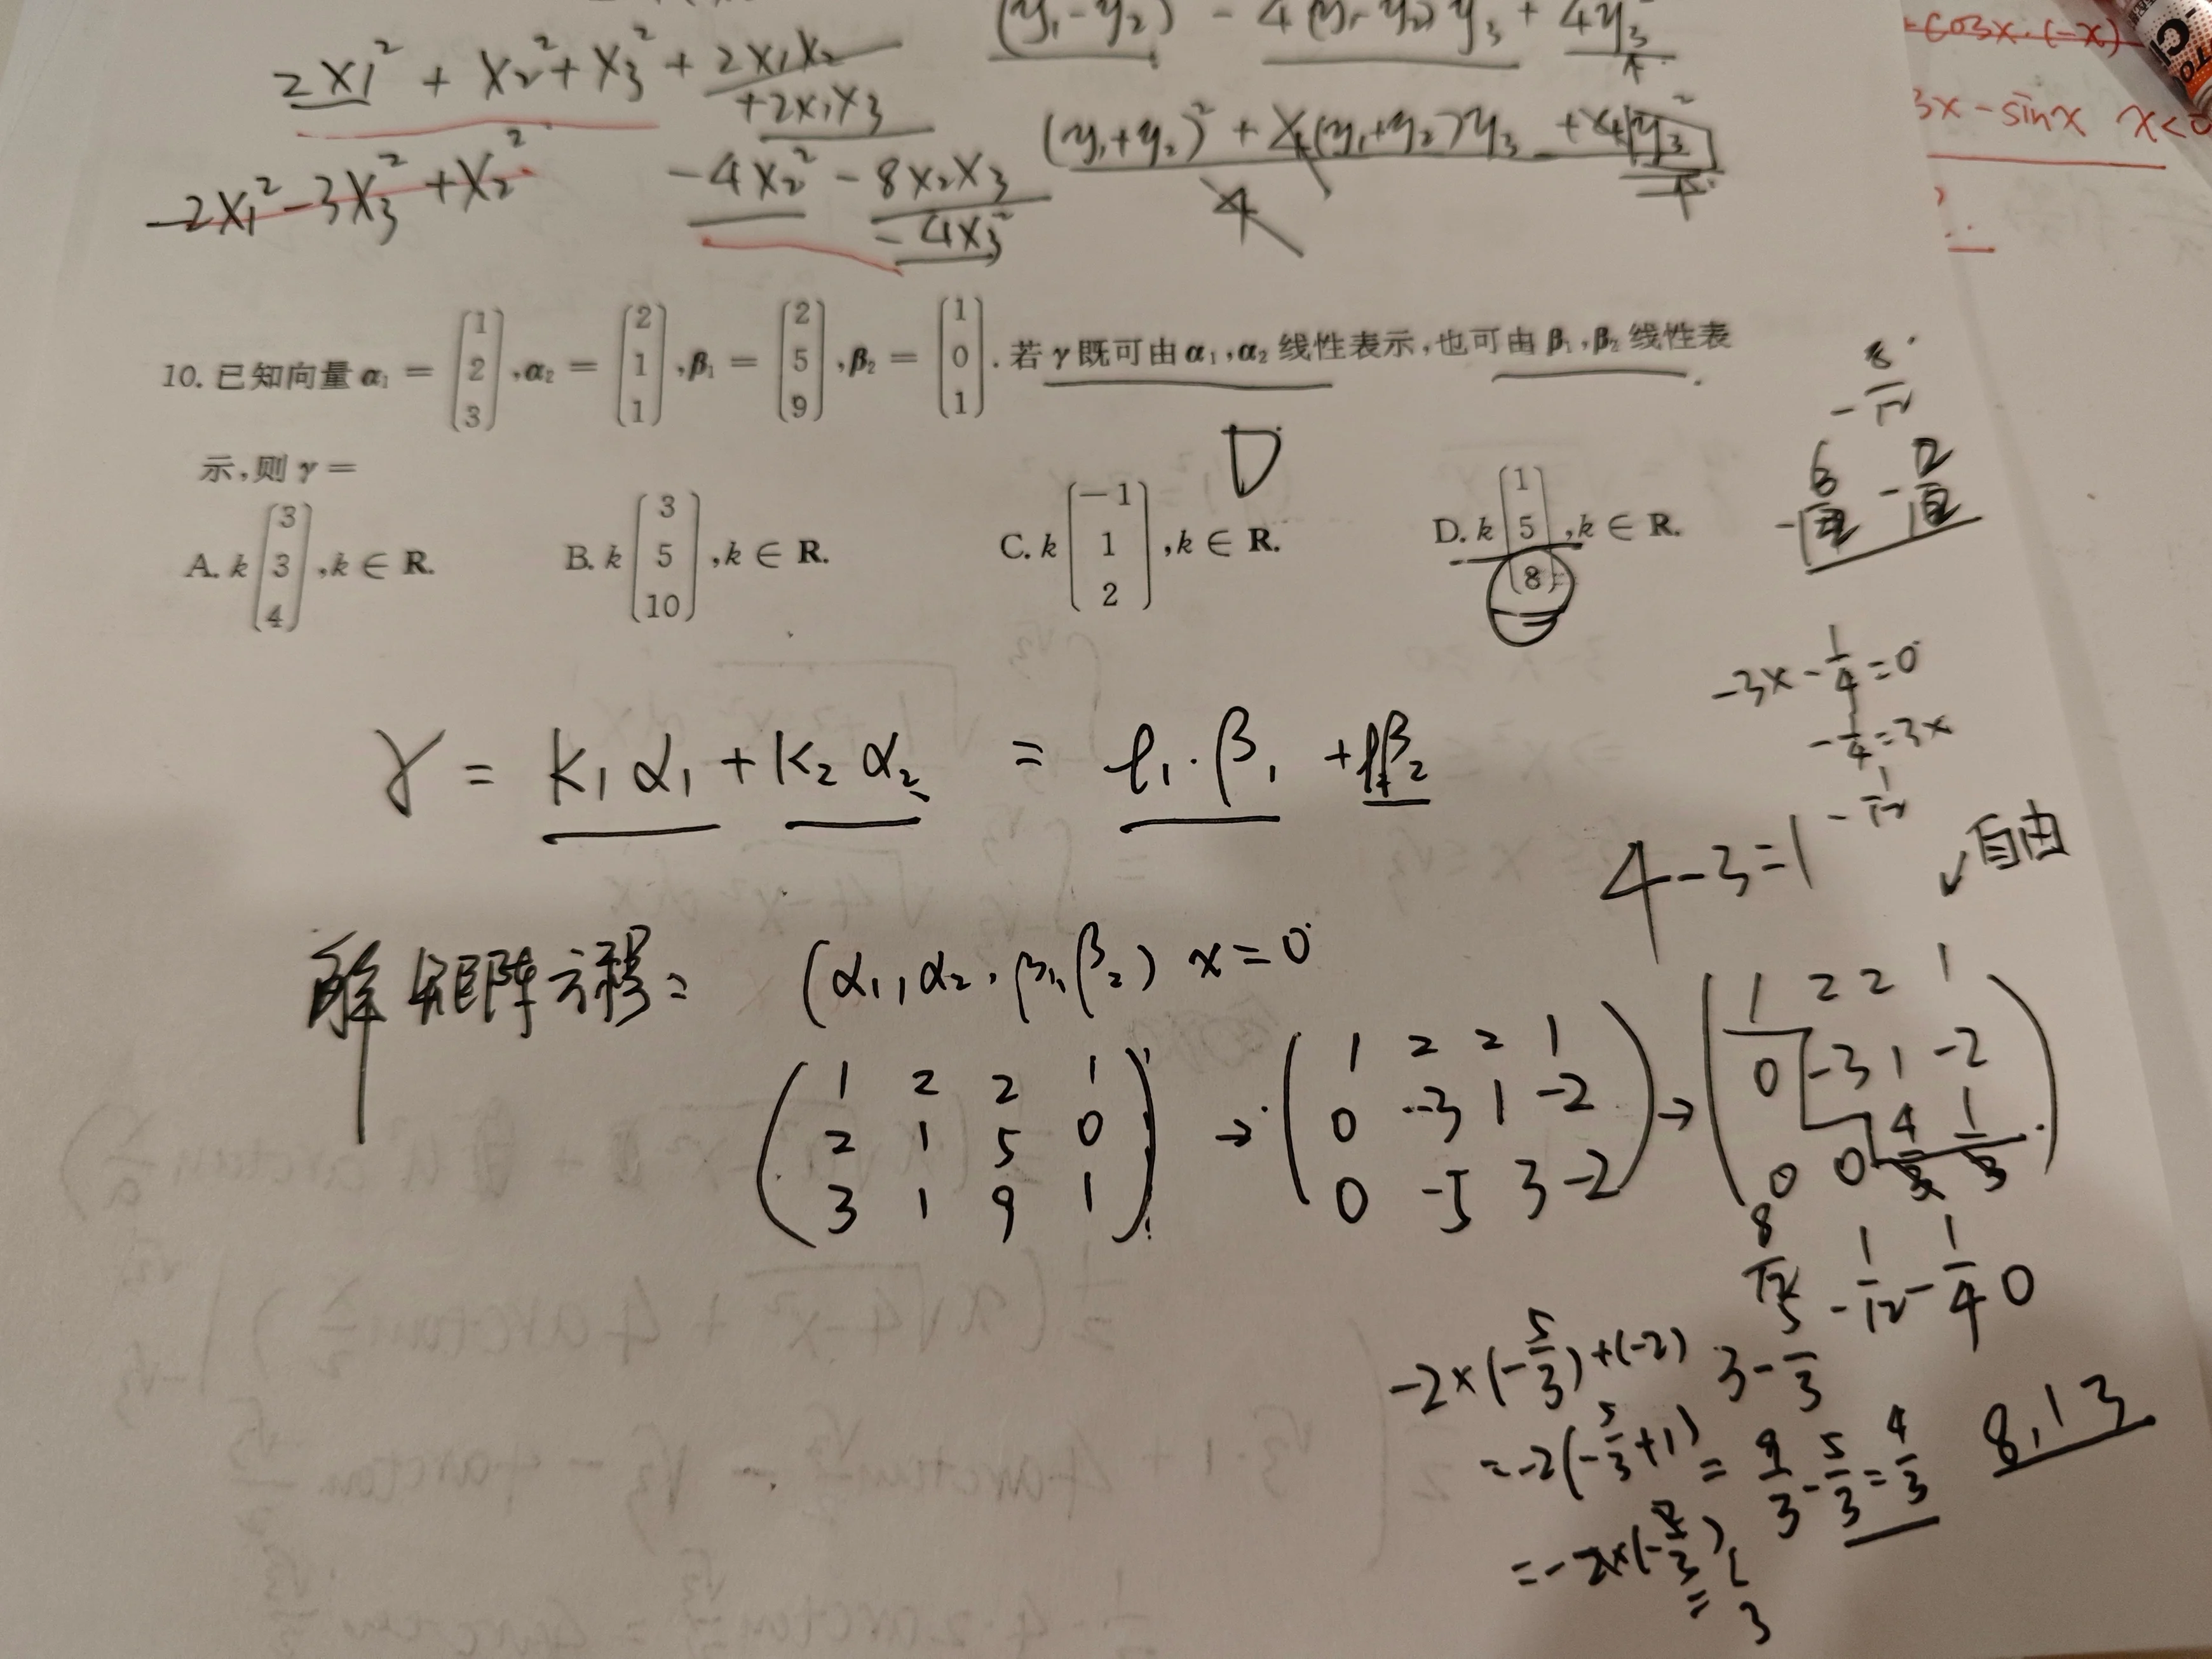 2x₁² + x₂² + x₃² + 2x₁x₂
+2x₁x₃
-2x₁² -3x₃² +x₂²
-4x₂² - 8x₂x₃
-4x₃²
(y₁-y₂) - 4(y₁-y₂)y₃ + 4y₃
(y₁+y₂)² + 4(y₁+y₂)y₃ + 4y₃²
4
cosx·(-x)
3x-sinx x<0
10. 已知向量 α₁ = (1 2 3), α₂ = (2 1 1), β₁ = (2 5 9), β₂ = (1 0 1). 若 γ 既可由 α₁,α₂ 线性表示,也可由 β₁,β₂ 线性表
示,则 γ =
D
A. k (3 3 4), k ∈ R.
B. k (3 5 10), k ∈ R.
C. k (-1 1 2), k ∈ R.
D. k (1 5 8), k ∈ R.
-8/12
-3x - 1/4 = 0
-1/4 = 3x
-1/12
γ = k₁α₁ + k₂α₂ = l₁·β₁ + l₂β₂
4-3=1
自由
解矩阵方程: (α₁, α₂, β₁, β₂) x = 0
(1 2 2 1
2 1 5 0
3 1 9 1)
→ (1 2 2 1
0 -3 1 -2
0 -5 3 -2)
→ (1 2 2 1
0 -3 1 -2
0 0 4/3 1/3)
8/12 -1/12 -1/4 0
-2×(-5/3)+(-2) 3-5/3
=-2(-5/3+1) = 9/3-5/3=4/3
8,13
=-2×(-2/3)